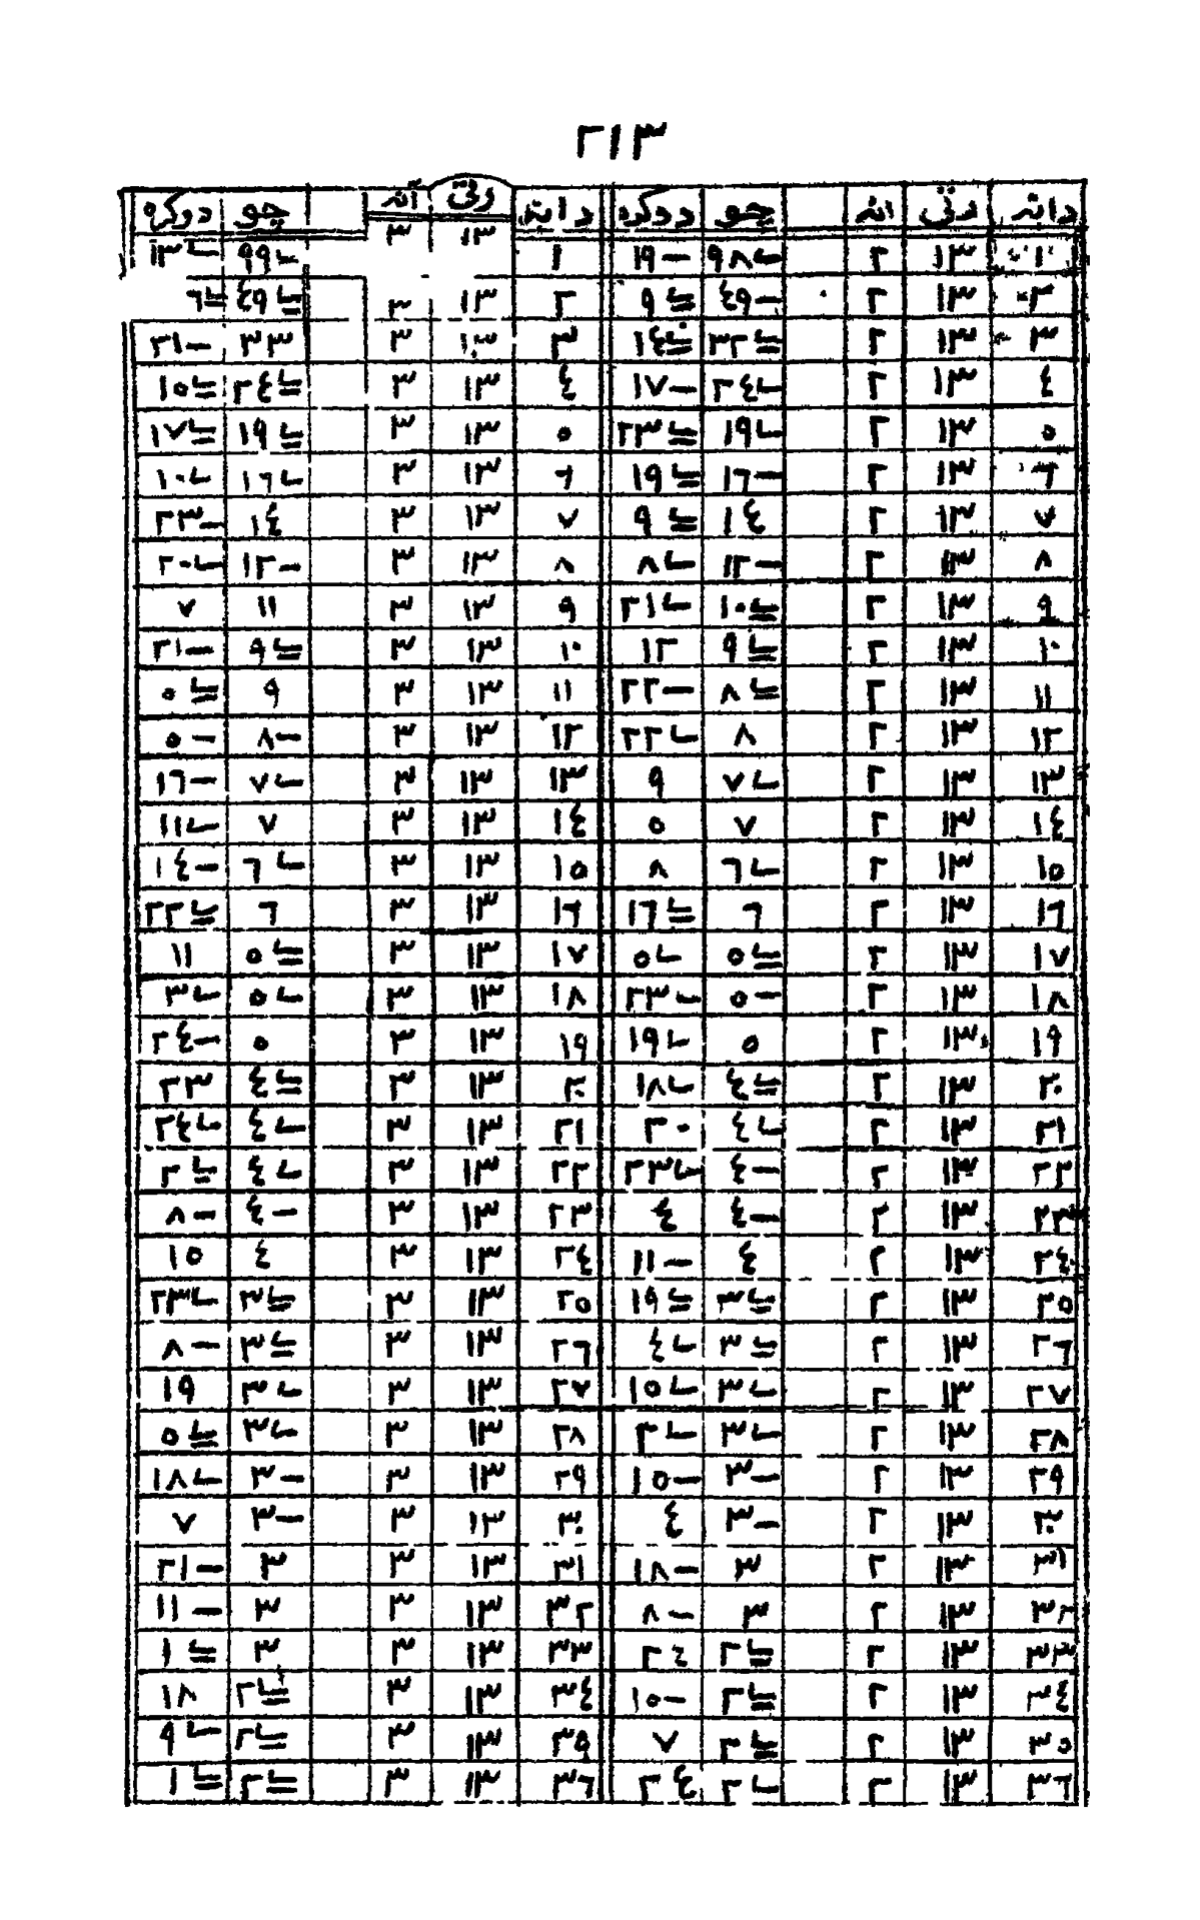 ٢١٣
دانه رتي انه چو دوكره دانه رتي آنه چو دوكره
١ ١٣ ٢ ٩٨ ١٩- ١ ١٣ ٣ ٩٩ ١٣
٢ ١٣ ٢ ٤٩- ٩ ٢ ١٣ ٣ ٤٩ ٦
٣ ١٣ ٢ ٣٢ ١٤ ٣ ١٣ ٣ ٣٣ ٢١-
٤ ١٣ ٢ ٢٤ ١٧- ٤ ١٣ ٣ ٢٤ ١٥
٥ ١٣ ٢ ١٩ ٢٣ ٥ ١٣ ٣ ١٩ ١٧
٦ ١٣ ٢ ١٦- ١٩ ٦ ١٣ ٣ ١٦ ١٠
٧ ١٣ ٢ ١٤ ٩ ٧ ١٣ ٣ ١٤ ٢٣-
٨ ١٣ ٢ ١٢- ٨ ٨ ١٣ ٣ ١٢- ٢٠
٩ ١٣ ٢ ١٠ ٢١ ٩ ١٣ ٣ ١١ ٧
١٠ ١٣ ٢ ٩ ١٢ ١٠ ١٣ ٣ ٩ ٢١-
١١ ١٣ ٢ ٨ ٢٢- ١١ ١٣ ٣ ٩ ٥
١٢ ١٣ ٢ ٨ ٢٢ ١٢ ١٣ ٣ ٨- ٥-
١٣ ١٣ ٢ ٧ ٩ ١٣ ١٣ ٣ ٧ ١٦-
١٤ ١٣ ٢ ٧ ٥ ١٤ ١٣ ٣ ٧ ١١
١٥ ١٣ ٢ ٦ ٨ ١٥ ١٣ ٣ ٦ ١٤-
١٦ ١٣ ٢ ٦ ١٦ ١٦ ١٣ ٣ ٦ ٢٢
١٧ ١٣ ٢ ٥ ٥ ١٧ ١٣ ٣ ٥ ١١
١٨ ١٣ ٢ ٥- ٢٣ ١٨ ١٣ ٣ ٥ ٣
١٩ ١٣ ٢ ٥ ١٩ ١٩ ١٣ ٣ ٥ ٢٤-
٢٠ ١٣ ٢ ٤ ١٨ ٢٠ ١٣ ٣ ٤ ٢٣
٢١ ١٣ ٢ ٤ ٢٠ ٢١ ١٣ ٣ ٤ ٢٤
٢٢ ١٣ ٢ ٤- ٢٣ ٢٢ ١٣ ٣ ٤ ٢
٢٣ ١٣ ٢ ٤- ٤ ٢٣ ١٣ ٣ ٤- ٨-
٢٤ ١٣ ٢ ٤ ١١- ٢٤ ١٣ ٣ ٤ ١٥
٢٥ ١٣ ٢ ٣ ١٩ ٢٥ ١٣ ٣ ٣ ٢٣
٢٦ ١٣ ٢ ٣ ٤ ٢٦ ١٣ ٣ ٣ ٨-
٢٧ ١٣ ٢ ٣ ١٥ ٢٧ ١٣ ٣ ٣ ١٩
٢٨ ١٣ ٢ ٣ ٢ ٢٨ ١٣ ٣ ٣ ٥
٢٩ ١٣ ٢ ٣- ١٥- ٢٩ ١٣ ٣ ٣- ١٨
٣٠ ١٣ ٢ ٣- ٤ ٣٠ ١٣ ٣ ٣- ٧
٣١ ١٣ ٢ ٣ ١٨- ٣١ ١٣ ٣ ٣ ٢١-
٣٢ ١٣ ٢ ٣ ٨- ٣٢ ١٣ ٣ ٣ ١١-
٣٣ ١٣ ٢ ٢ ٢٤ ٣٣ ١٣ ٣ ٣ ١
٣٤ ١٣ ٢ ٢ ١٥- ٣٤ ١٣ ٣ ٢ ١٨
٣٥ ١٣ ٢ ٢ ٧ ٣٥ ١٣ ٣ ٢ ٩
٣٦ ١٣ ٢ ٢ ٢٤ ٣٦ ١٣ ٣ ٢ ١